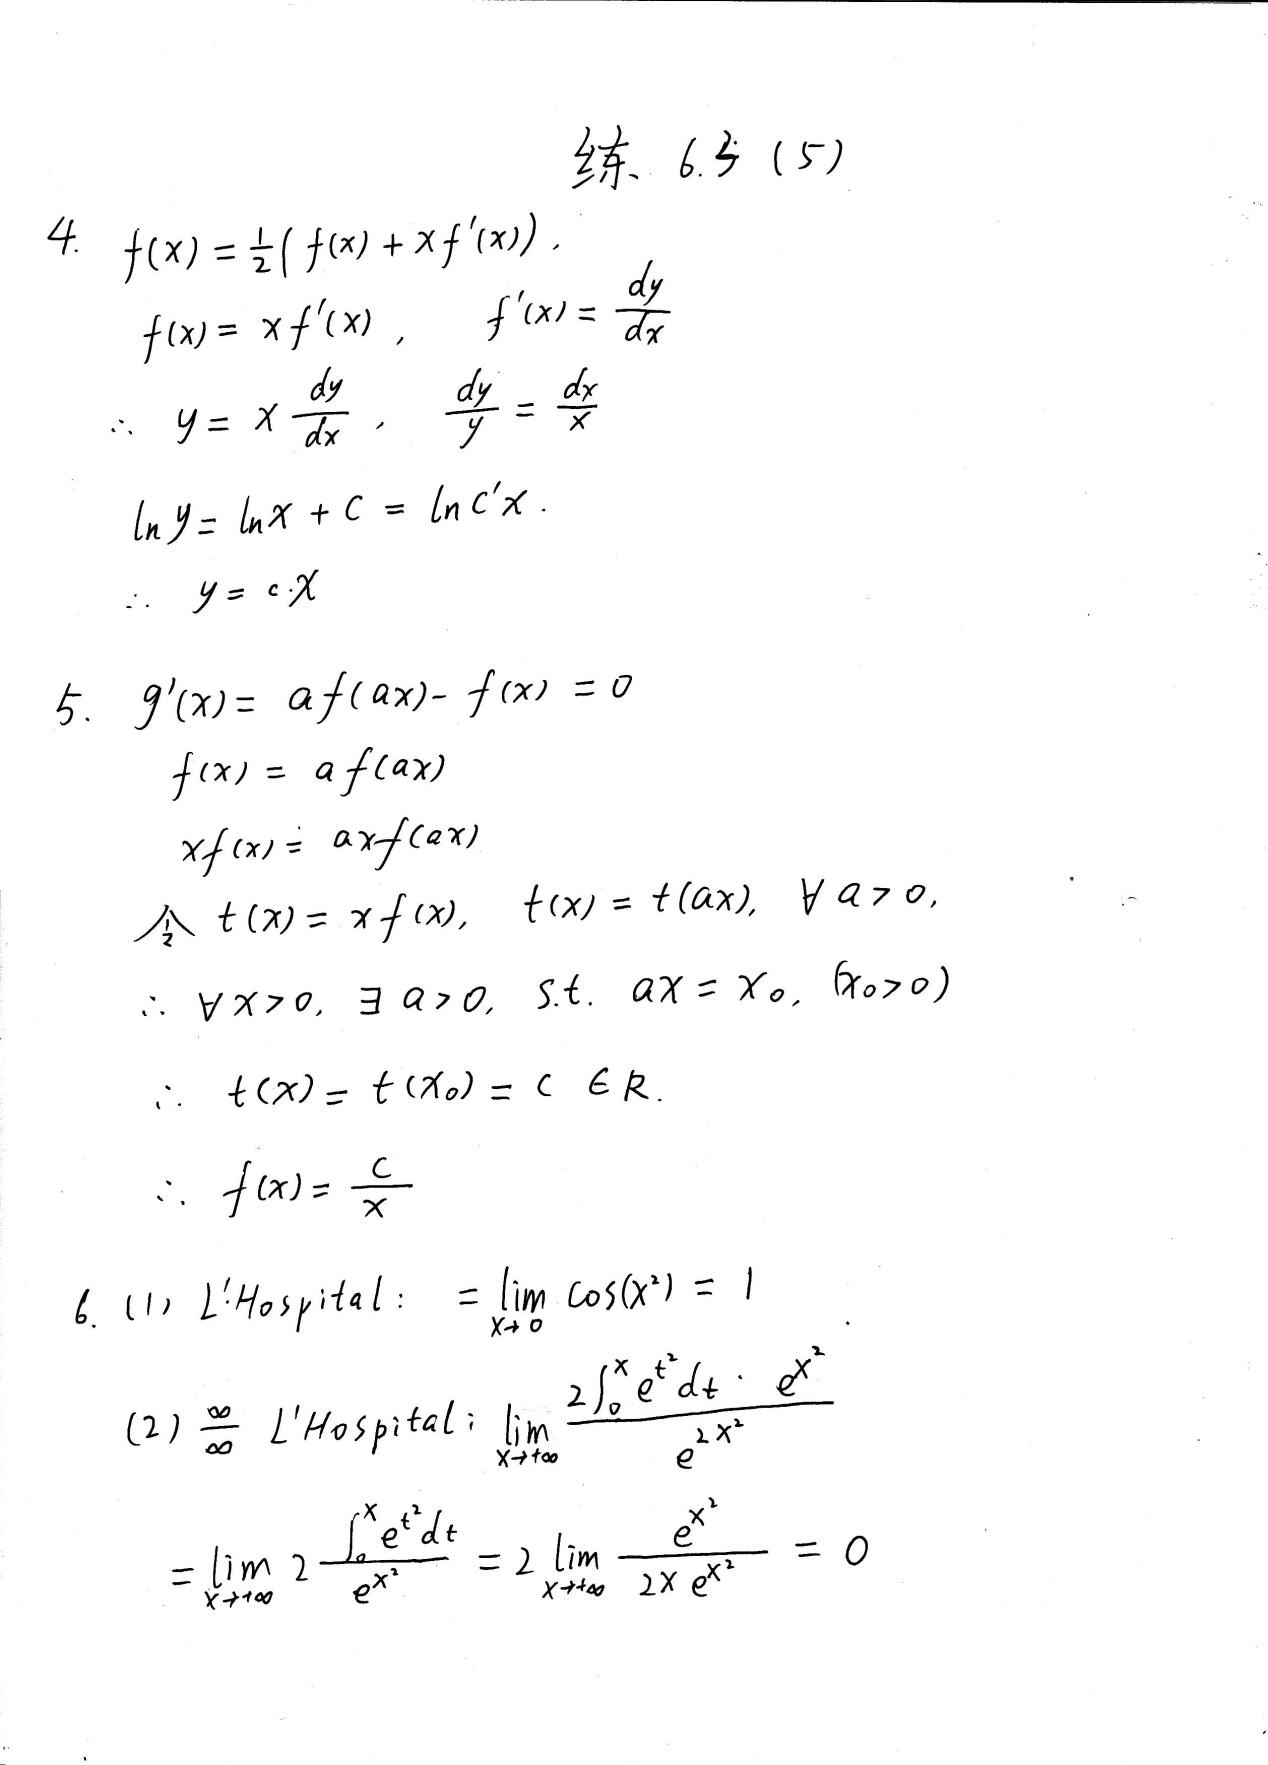 练、6.3 (5)
4. f(x) = 1/2 ( f(x) + x f'(x) ).
f(x) = x f'(x), f'(x) = dy/dx
∴ y = x dy/dx, dy/y = dx/x
ln y = ln x + C = ln C'x.
∴ y = c·x
5. g'(x) = a f(ax) - f(x) = 0
f(x) = a f(ax)
x f(x) = ax f(ax)
令 t(x) = x f(x), t(x) = t(ax), ∀ a>0,
∴ ∀ x>0, ∃ a>0, s.t. ax = x₀, (x₀>0)
∴ t(x) = t(x₀) = C ∈ R.
∴ f(x) = C/x
6. (1) L'Hospital: = lim_{x→0} cos(x²) = 1
(2) ∞/∞ L'Hospital: lim_{x→+∞} 2∫₀ˣ e^{t²}dt · e^{x²} / e^{2x²}
= lim_{x→+∞} 2 ∫₀ˣ e^{t²}dt / e^{x²} = 2 lim_{x→+∞} e^{x²} / 2x e^{x²} = 0